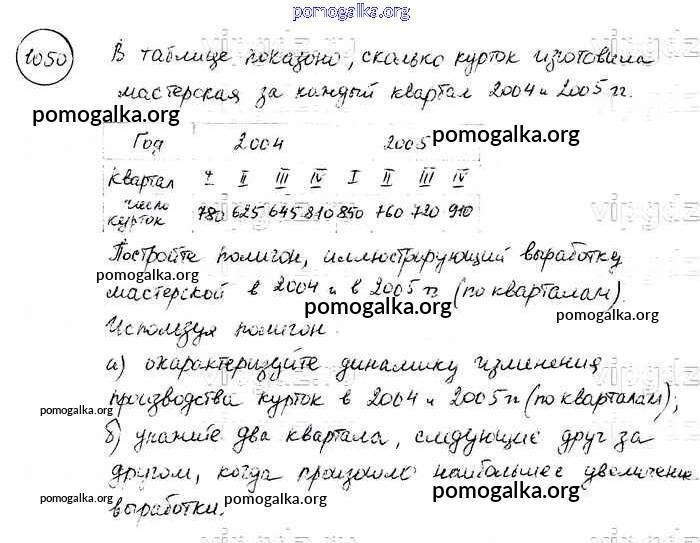 pomogalka.org
1050 В таблице показано, сколько курток изготовила
мастерская за каждый квартал 2004 и 2005 гг.
pomogalka.org
Год 2004 2005
pomogalka.org
квартал I II III IV I II III IV
число
курток 780 625 645 810 850 760 720 910
Постройте полигон, иллюстрирующий выработку
pomogalka.org
мастерской в 2004 и в 2005 гг (по кварталам).
pomogalka.org
pomogalka.org
Используя полигон.
а) охарактеризуйте динамику изменения
производства курток в 2004 и 2005 гг (по кварталам);
pomogalka.org
pomogalka.org
б) укажите два квартала, следующие друг за
другом, когда произошло наибольшее увеличение
pomogalka.org
pomogalka.org
pomogalka.org
выработки.